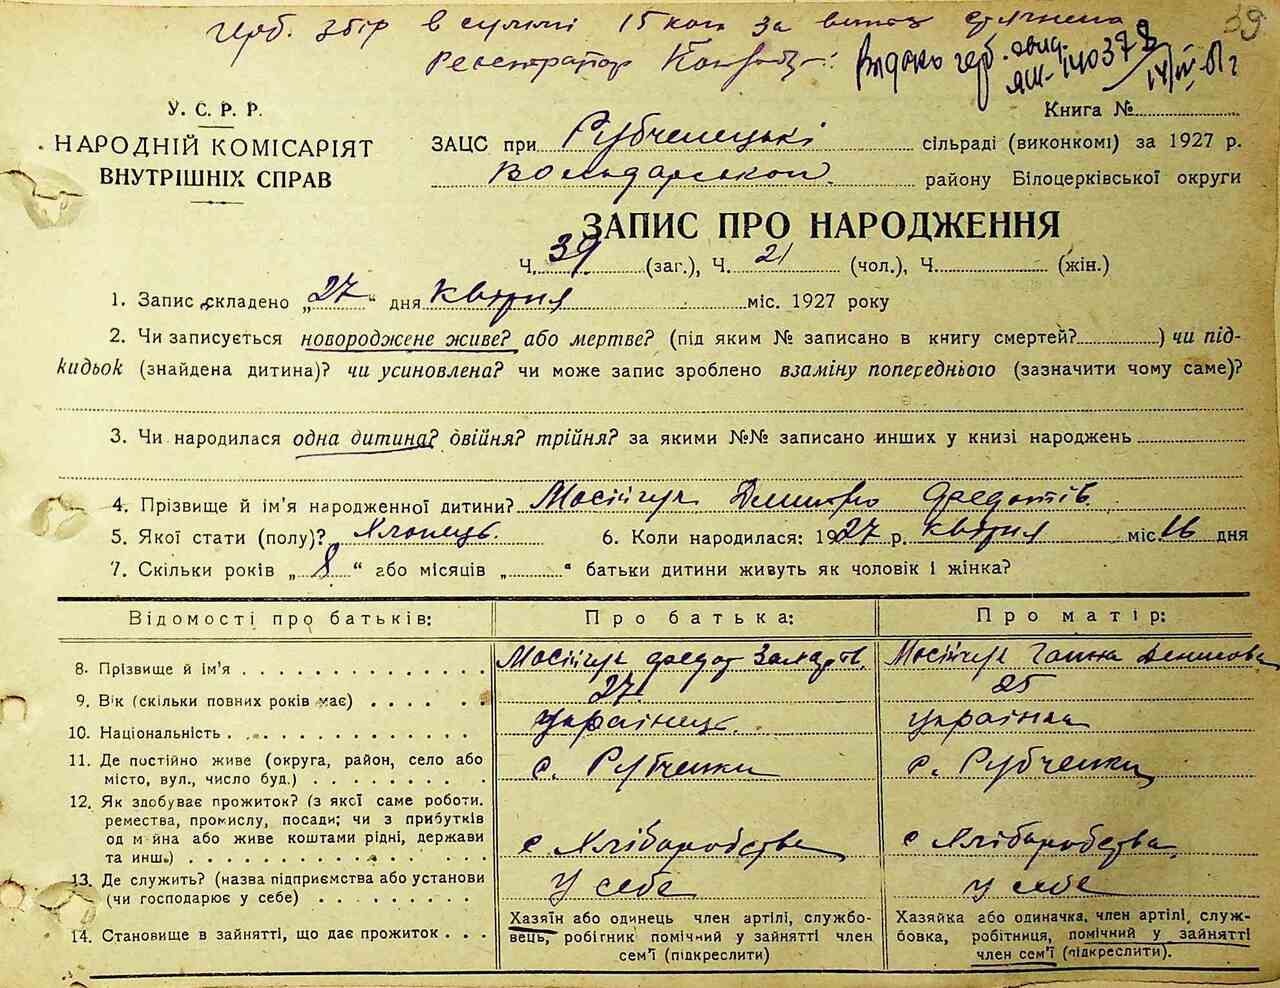 герб. збір в суммі 15 коп за витяг стягнено
39
Реєстратор
Видано герб. свид.
ЯШ-140373
14/IV-81г
У. С. Р. Р.
НАРОДНІЙ КОМІСАРІЯТ
ВНУТРІШНІХ СПРАВ
Книга №
ЗАЦС при Рубченецькі сільраді (виконкомі) за 1927 р.
Володарської району Білоцерківської округи
ЗАПИС ПРО НАРОДЖЕННЯ
Ч. 39 (заг.), Ч. 21 (чол.), Ч. (жін.)
1. Запис складено „27“ дня квітня міс. 1927 року
2. Чи записується новороджене живе? або мертве? (під яким № записано в книгу смертей? ) чи під-
кидьок (знайдена дитина)? чи усиновлена? чи може запис зроблено взаміну попереднього (зазначити чому саме)?
3. Чи народилася одна дитина? двійня? трійня? за якими №№ записано инших у книзі народжень
4. Прізвище й ім'я народженної дитини? Мосійчук Дмитро Федотів
5. Якої стати (полу)? Хлопець. 6. Коли народилася: 1927 р. квітня міс. 16 дня
7. Скільки років „8“ або місяців „ “ батьки дитини живуть як чоловік і жінка?
Відомості про батьків: Про батька: Про матір:
8. Прізвище й ім'я Мосійчук Федот Мосійчук Ганна Денисова
9. Вік (скільки повних років має) 27 25
10. Національність українець українка
11. Де постійно живе (округа, район, село або
місто, вул., число буд.) с. Рубченки с. Рубченки
12. Як здобуває прожиток? (з якої саме роботи.
ремества, промислу, посади; чи з прибутків
од майна або живе коштами рідні, держави
та инш.) с хліборобства с хліборобства
13. Де служить? (назва підприємства або установи
(чи господарює у себе) у себе у себе
14. Становище в зайнятті, що дає прожиток
Хазяїн або одинець член артілі, службо-
вець, робітник помічний у зайнятті член
сем'ї (підкреслити)
Хазяйка або одиначка, член артілі, служ-
бовка, робітниця, помічний у зайнятті
член сем'ї (підкреслити).